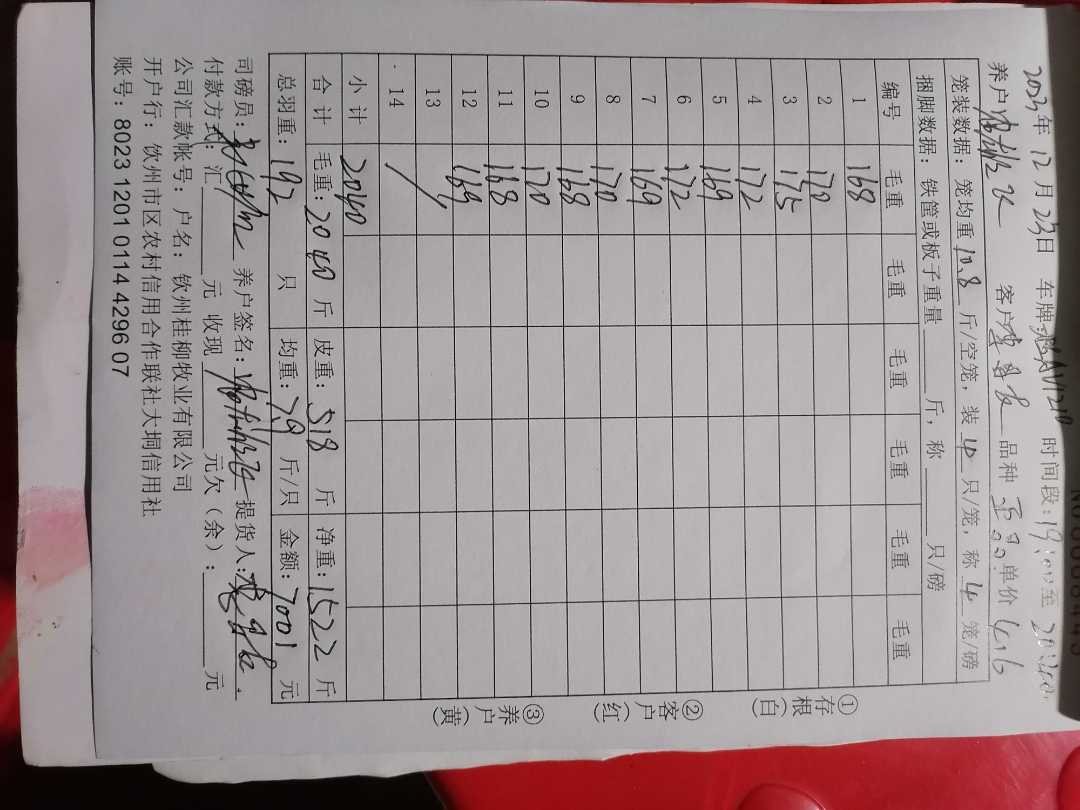 2023年12月23日 车牌: AV1219 时间段:19:00至20:40
养户 客户 品种 单价4.6
笼装数据:笼均重10.8斤/空笼,装4只/笼,称4笼/磅
捆脚数据:铁筐或板子重量 斤,称 只/磅
编号 毛重 毛重 毛重 毛重 毛重 毛重
1 168
2 170
3 175
4 172
5 169
6 172
7 169
8 170
9 168
10 170
11 168
12 169
13 /
14
小计 2040
合计 毛重:2040斤 皮重:518斤 净重:1522斤
总羽重:192只 均重:7.9斤/只 金额:7001元
司磅员: 养户签名: 提货人:
付款方式:汇 元 收现 元欠(余): 元
公司汇款帐号:户名:钦州桂柳牧业有限公司
开户行:钦州市区农村信用合作联社大垌信用社
账号:8023 1201 0114 4296 07
①存根(白)
②客户(红)
③养户(黄)